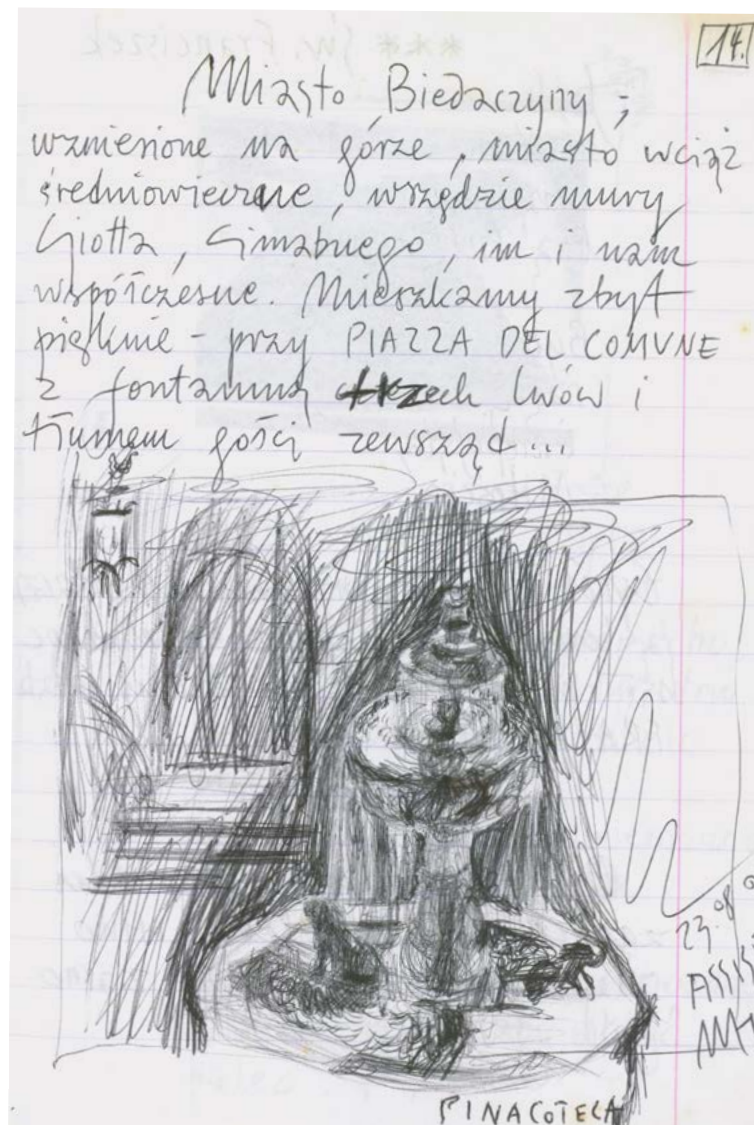 14.
Miasto Biedaczyny;
wzniesione na górze, miasto wciąż
średniowieczne, wszędzie mury
Giotta, Cimabuego, im i nam
współczesne. Mieszkamy zbyt
pięknie - przy PIAZZA DEL COMVNE
z fontanną trzech lwów i
tłumem gości zewsząd...
23 08
ASSIS
PINACOTECA